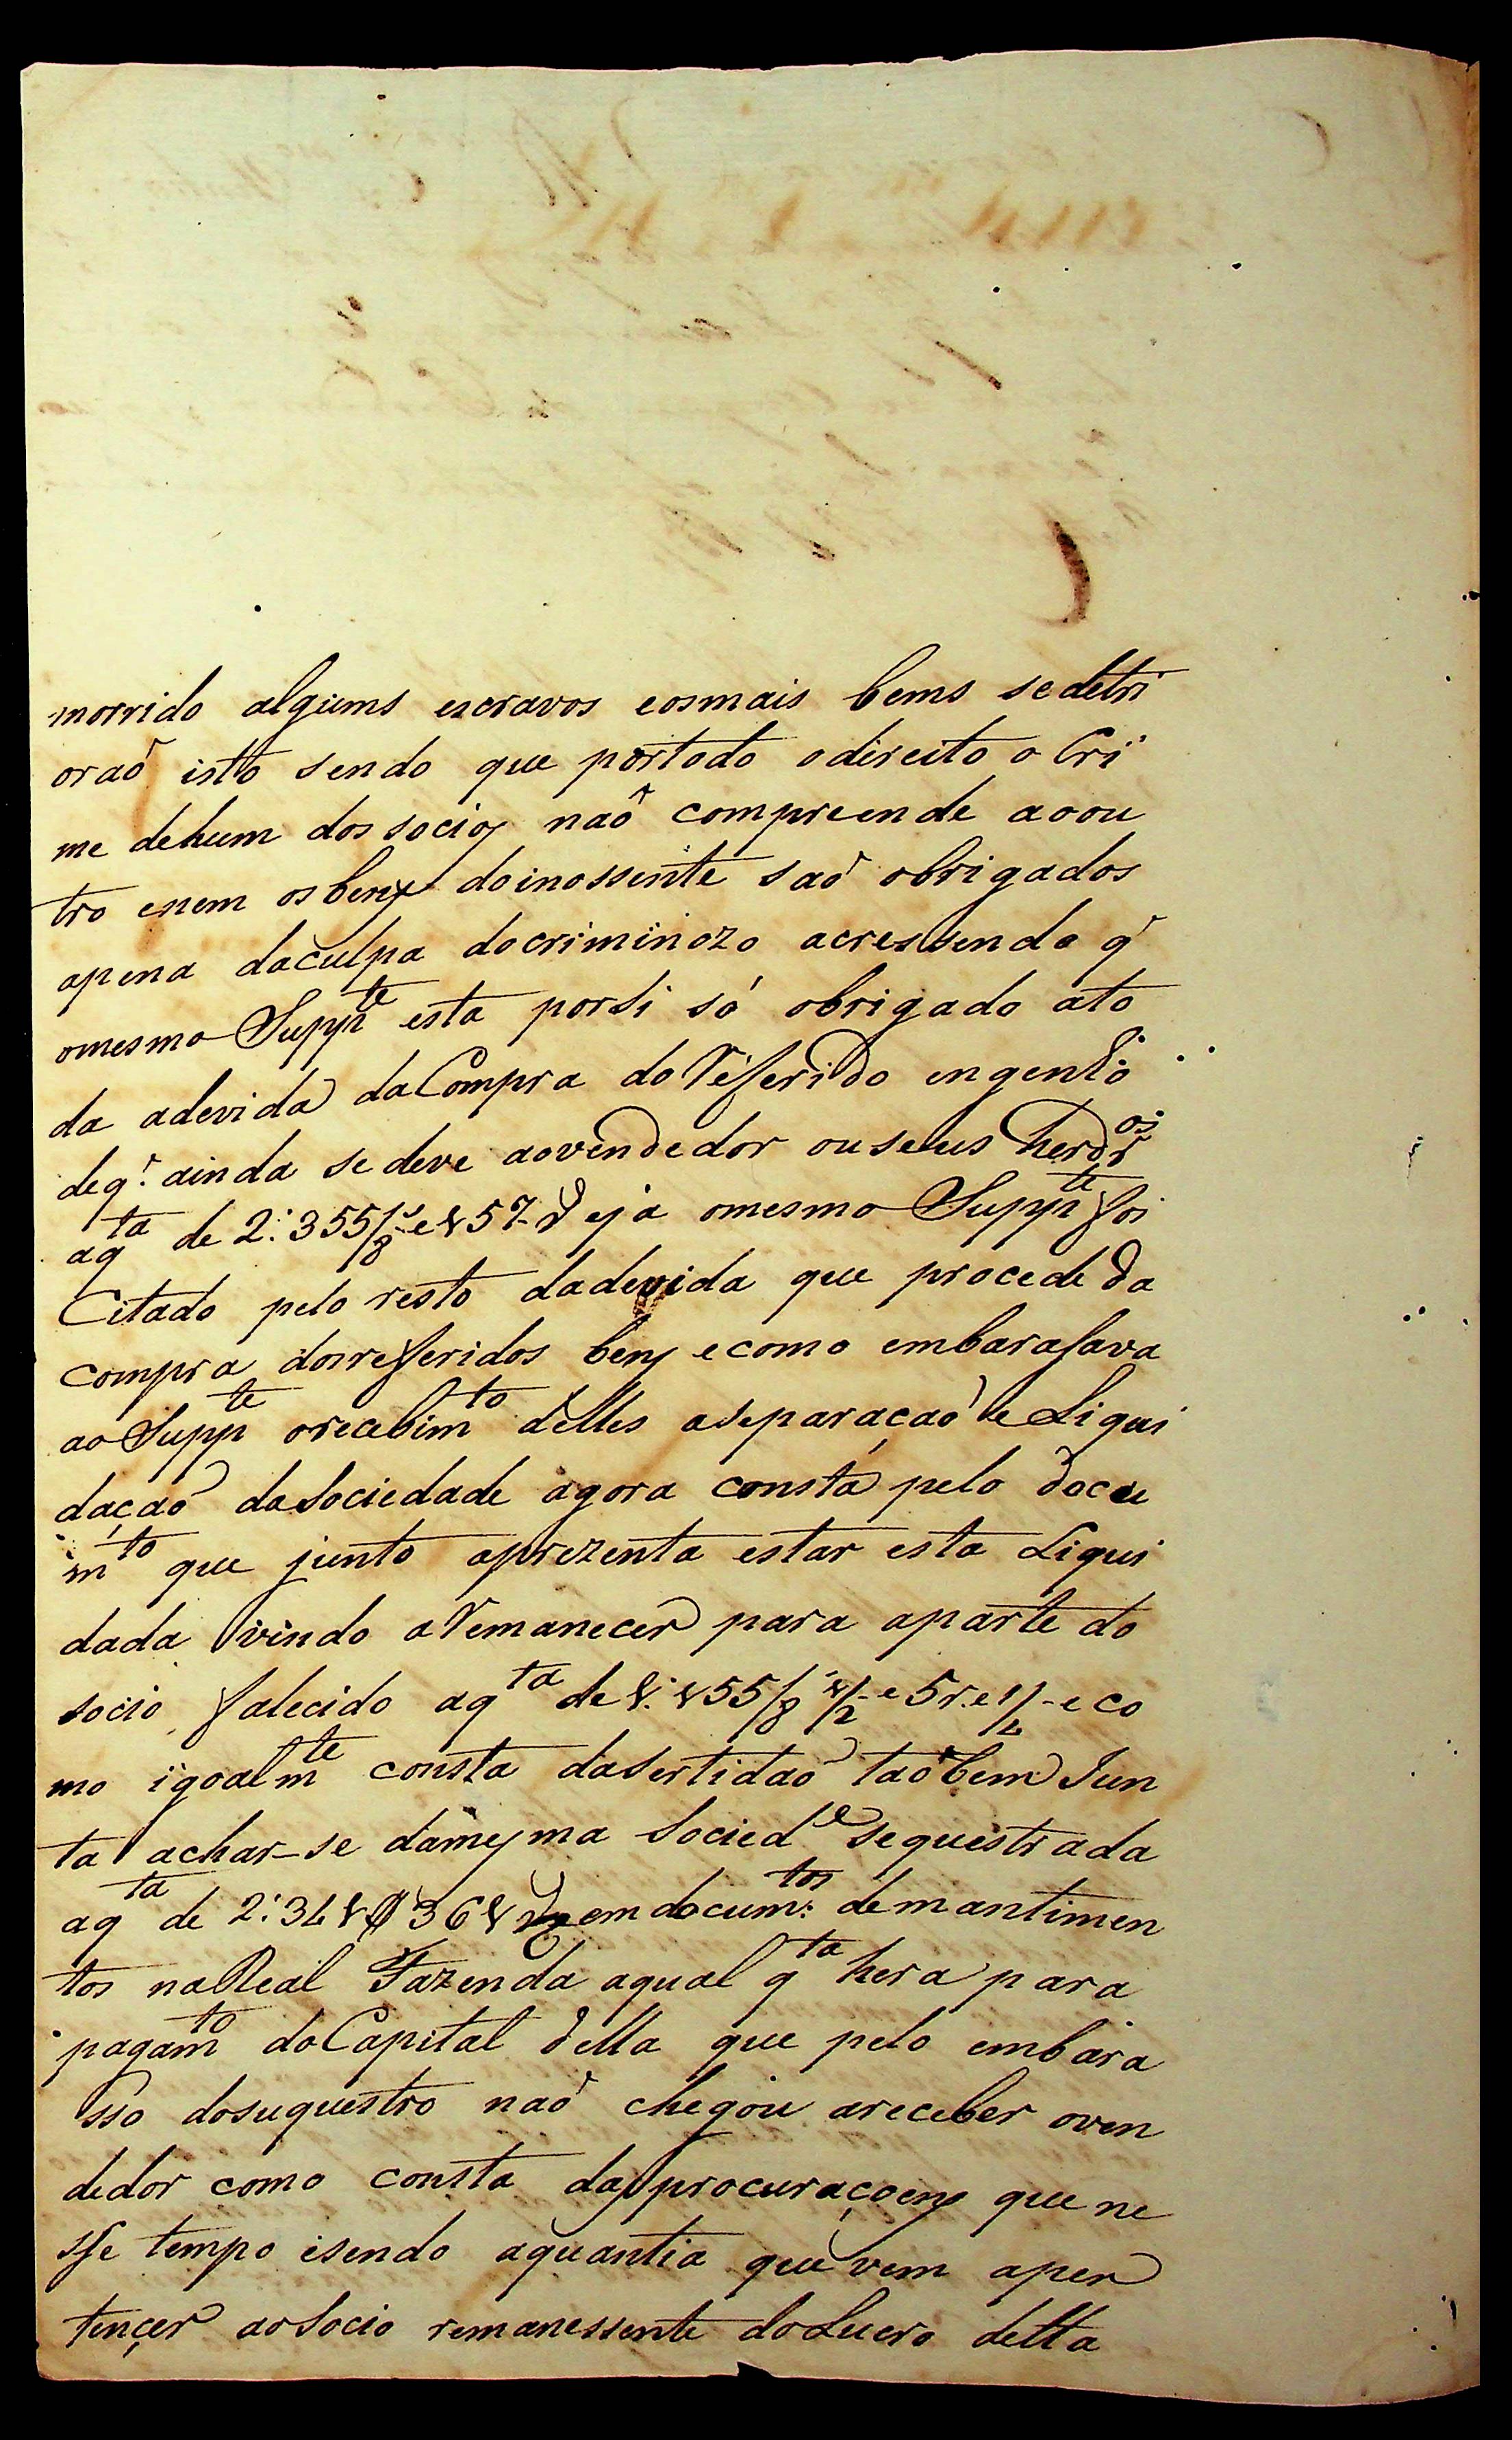 morrido algums escravos eosmais bems sedetri
oraõ isto sendo que portodo odireito o Cri
me dehum dos socios naõ compreende aoou
tro enem osbens doinossente saõ obrigados
apena daculpa docriminozo acressendo q̃
omesmo Supp.te esta porsi só obrigado ato
da adevida daCompra doReferido engenho
deq̃. ainda sedeve aovendedor ouseus herdr.os
aq.ta de 2:355/8 e 457 ejá omesmo Supp.te foi
Citado pelo resto dadevida que procede da
compra dosrefferidos bens ecomo embarasava
ao Supp.te orecebim.to delles aseparaçaõ e Liqui
daçaõ dasociedade agora consta pelo docu
m.to que junto aprezenta estar esta Liqui
dada vindo aRemanecer para aparte do
socio falecido aq.ta de 4:455/8 1/2 e 5 r. e 1/2 - e co
mo igoalm.te consta dasertidaõ taõbem Jun
ta achar-se damesma Socied.e sequestrada
aq.ta de 2:344$364 em docum.tos demantimen
tos naReal Fazenda aqual q.ta hera para
pagam.to doCapital della que pelo embara
sso dosuquestro naõ chegou areceber oven
dedor como consta dasprocuraçoens que ne
sse tempo esendo aquantia que vem aper
tençer aosocio remanessente doLucro detta